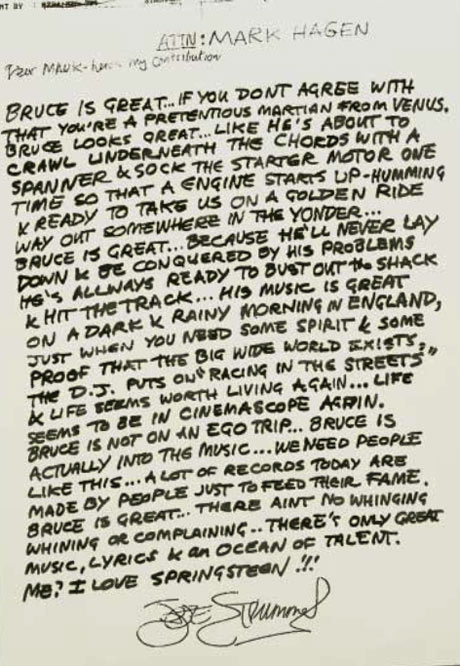 NT BY :
ATTN: MARK HAGEN
Dear MARK - here's my contribution
BRUCE IS GREAT... IF YOU DONT AGREE WITH
THAT YOU'RE A PRETENTIOUS MARTIAN FROM VENUS.
BRUCE LOOKS GREAT... LIKE HE'S ABOUT TO
CRAWL UNDERNEATH THE CHORDS WITH A
SPANNER & SOCK THE STARTER MOTOR ONE
TIME SO THAT A ENGINE STARTS UP-HUMMING
& READY TO TAKE US ON A GOLDEN RIDE
WAY OUT SOMEWHERE IN THE YONDER...
BRUCE IS GREAT... BECAUSE HE'LL NEVER LAY
DOWN & BE CONQUERED BY HIS PROBLEMS
HE'S ALLWAYS READY TO BUST OUT the SHACK
& HIT THE TRACK... HIS MUSIC IS GREAT
ON A DARK & RAINY MORNING IN ENGLAND,
JUST WHEN YOU NEED SOME SPIRIT & SOME
PROOF THAT THE BIG WIDE WORLD EXISTS,
THE D.J. PUTS ON "RACING IN THE STREETS"
& LIFE SEEMS WORTH LIVING AGAIN... LIFE
SEEMS TO BE IN CINEMASCOPE AGAIN.
BRUCE IS NOT ON AN EGO TRIP... BRUCE IS
ACTUALLY INTO THE MUSIC... WE NEED PEOPLE
LIKE THIS... A LOT OF RECORDS TODAY ARE
MADE BY PEOPLE JUST TO FEED THEIR FAME.
BRUCE IS GREAT... THERE AINT NO WHINGING
WHINING OR COMPLAINING.. THERE'S ONLY GREAT
MUSIC, LYRICS & an OCEAN OF TALENT.
ME? I LOVE SPRINGSTEEN !!!
JOE Strummer